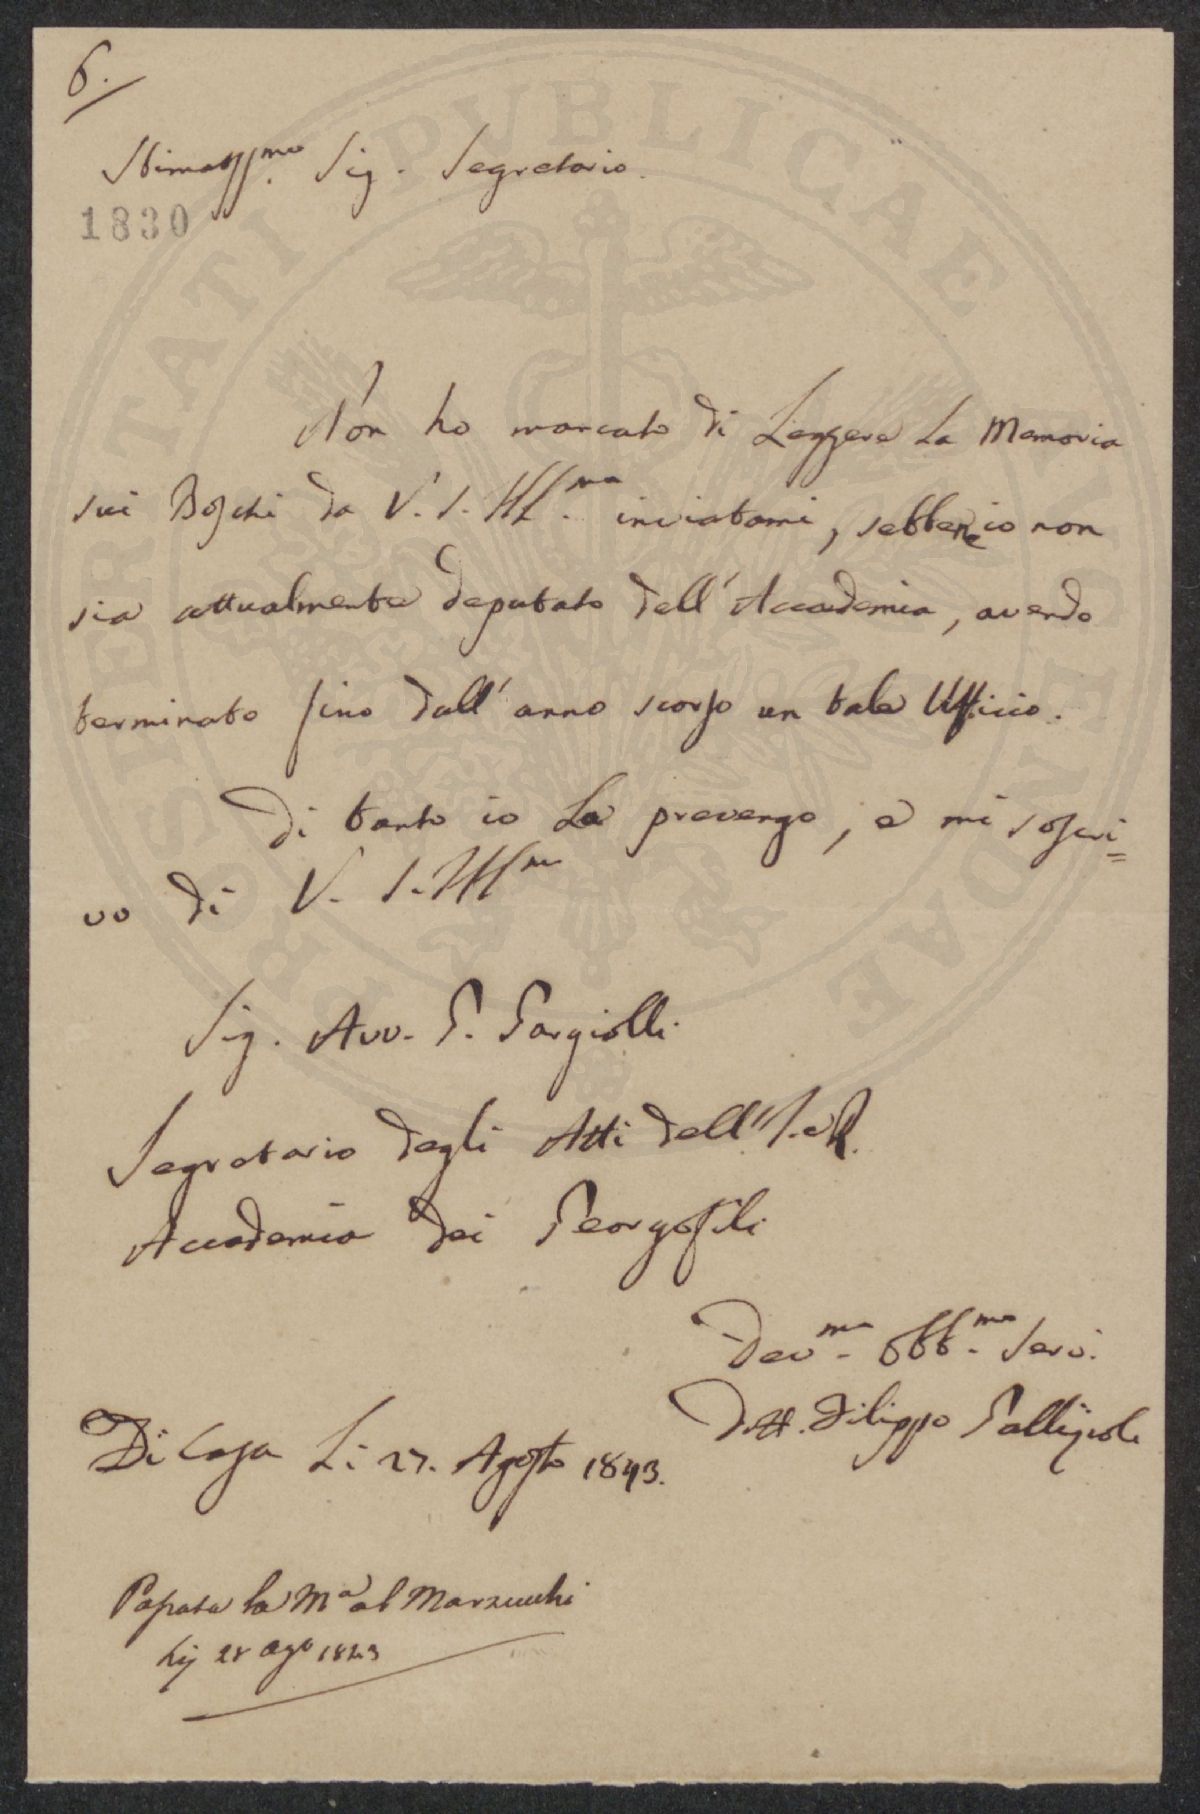 6.
Stimatiss.mo Sig. Segretario.
1830
Non ho mancato di Leggere La Memoria
sui Boschi da V. S. Ill.ma inviatami, sebbene io non
sia attualmente deputato dell'Accademia, avendo
terminato fino dall'anno scorso un tale Ufficio.
Di tanto io La prevengo, e mi soscri=
vo di V. S. Ill.ma
Sig. Avv. G. Gargiolli
Segretario degli Atti dell'I. e R.
Accademia dei Georgofili
Dev.mo Obb.mo Serv.
Dott. Filippo Gallizioli
Di Casa Li 27. Agosto 1843.
Passata la M.a al Marzucchi
li 28 ago 1843
PROSPERITATI PUBLICAE AUGENDAE